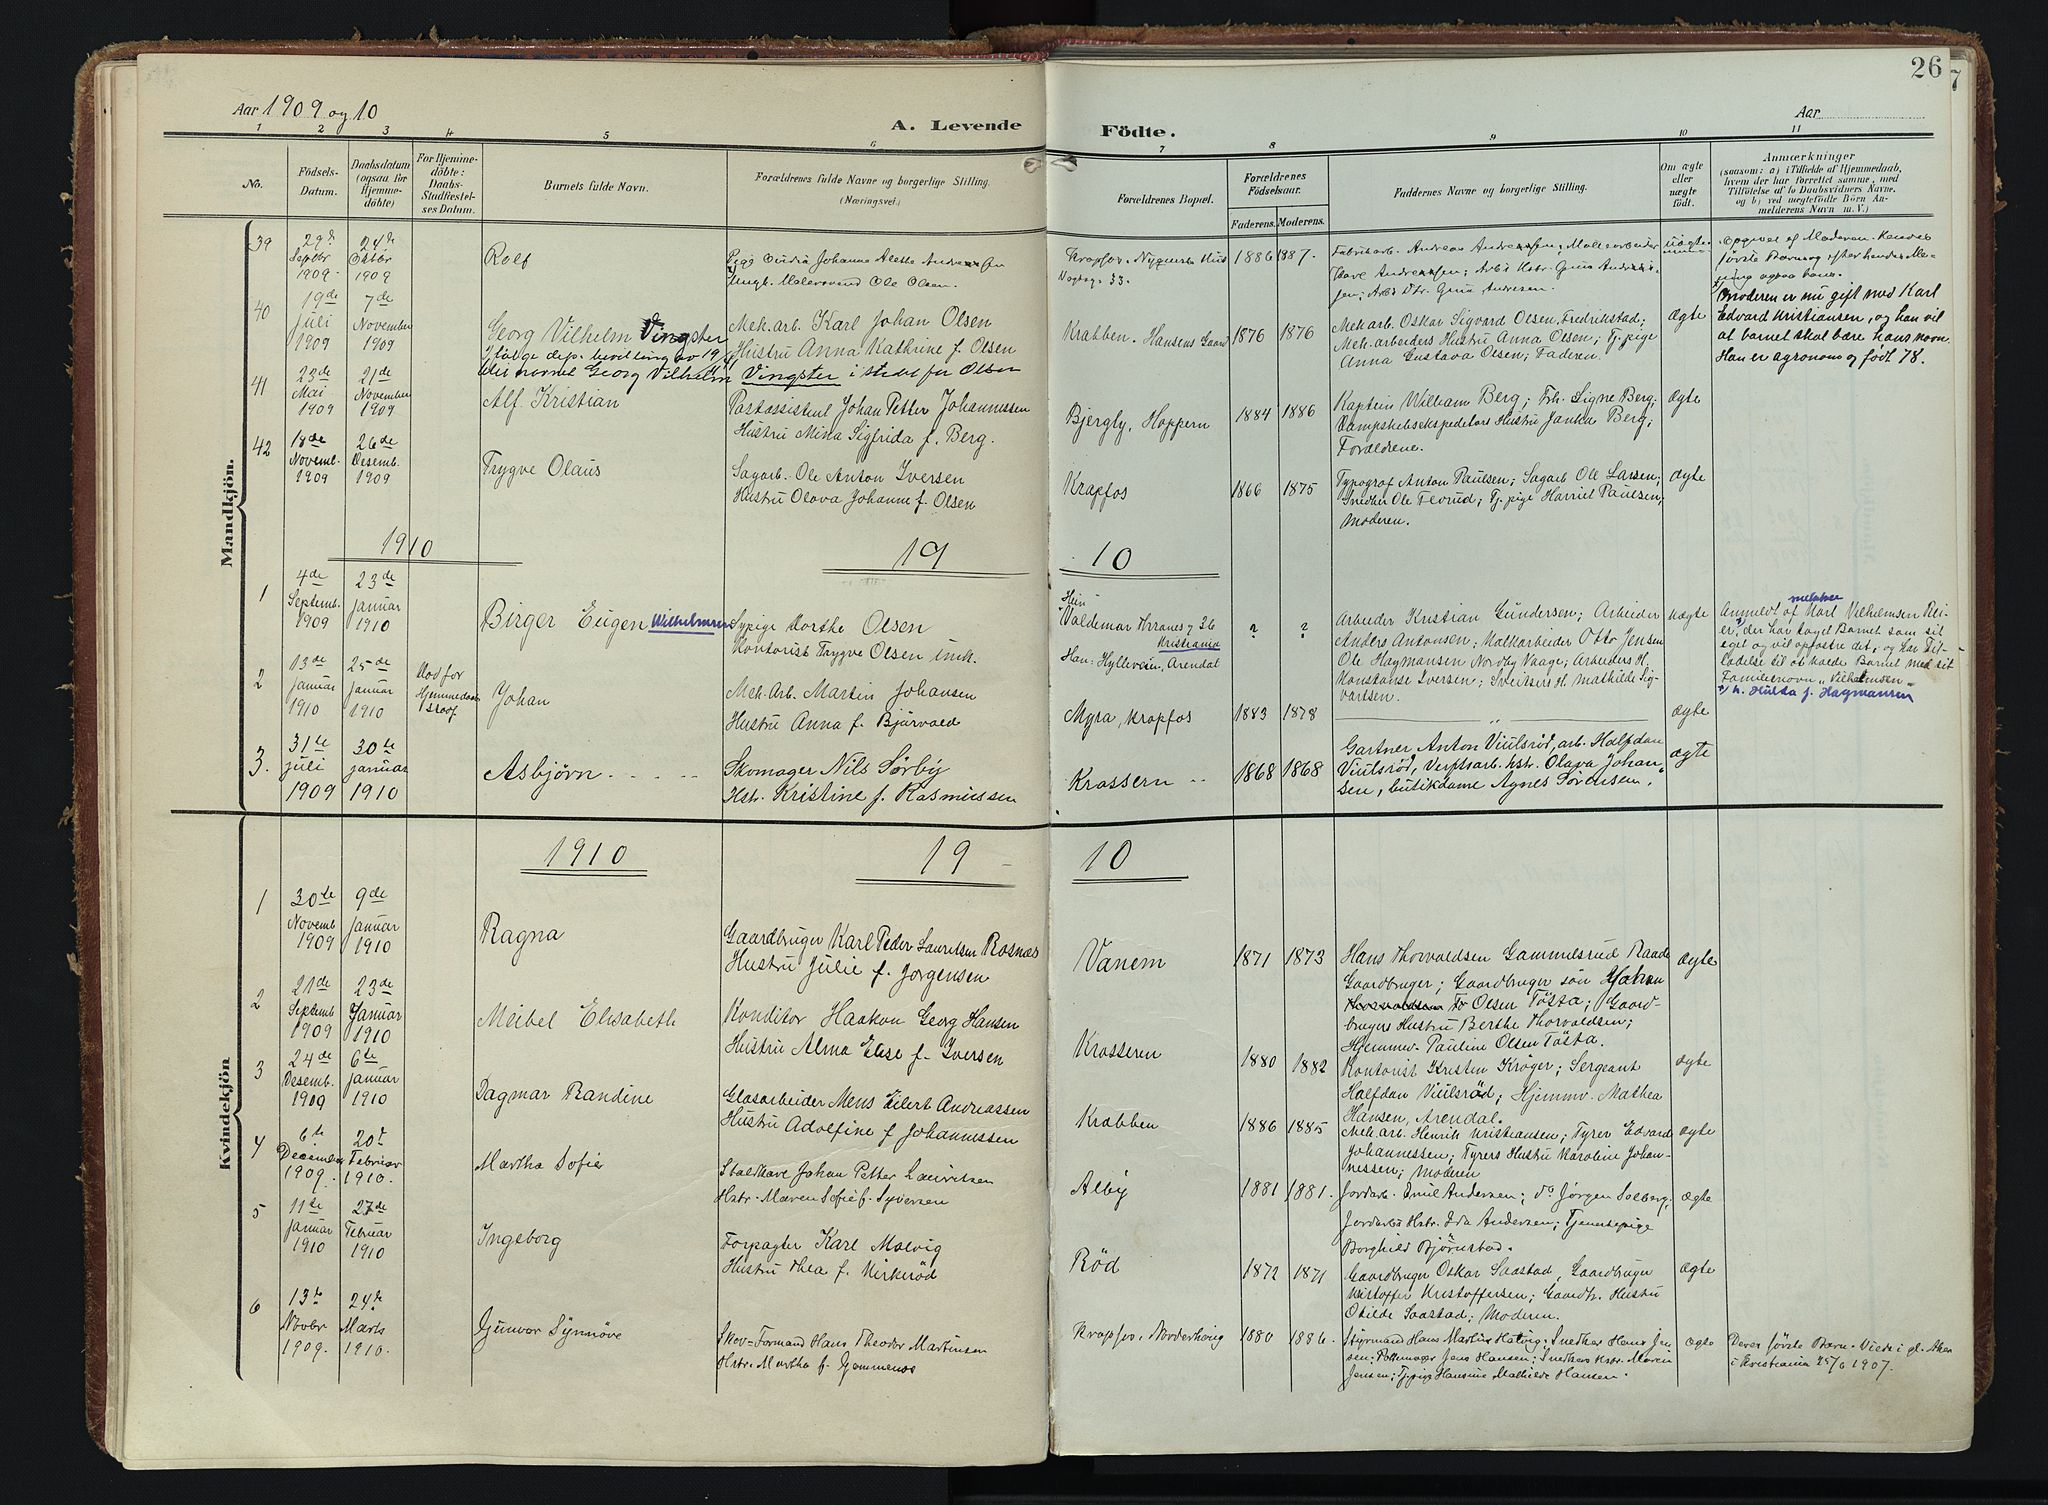 26
Aar 1909 og 10
A. Levende
Födte.
Aar
1 2 3 4 5 6 7 8 9 10 11
No.
Födsels-
Datum.
Daabsdatum
(ogsaa for
Hjemme-
döbte)
For Hjemme-
döbte:
Daabs-
Stadfæstel-
ses Datum.
Barnets fulde Navn.
Forældrenes fulde Navne og borgerlige Stilling.
(Næringsvei.)
Forældrenes Bopæl.
Forældrenes
Födselsaar.
Faderens. Moderens.
Faddernes Navne og borgerlige Stilling.
Om ægte
eller
uægte
födt.
Anmærkninger
(saasom: a) i Tilfælde af Hjemmedaab,
hvem der har forrettet samme, med
Tilföielse af to Daabsvidners Navne,
og b) ved uægtefödte Börn An-
melderens Navn m. V.)
Mandkjön.
39
29de
Septbr
1909.
24de
Oktbr
1909
Rolf
Pige Oudia Johanne Alette Andreassen
Ungk. Malersvend Ole Olsen.
Krapfos. Nygaards Hus
1886 1887.
Fabrikarb. Andreas Andreassen; Malerarbeider
uægte
første Barn
40
19de
Juli
1909
7de
November
1909
Georg Vilhelm Vingster
Ifølge dep. bevilling av
navnet Georg Vilhelm Vingster i stedet for Olsen
Mek. arb. Karl Johan Olsen
Hustru Anna Kathrine f. Olsen
Krabben. Hansens Gaard
1876 1876
Mek. arb. Oskar Sigvard Olsen, Fredrikstad;
Mek. arbeiders Hustru Anna Olsen; Tj. pige
Anna Gustava Olsen; Faderen.
ægte
Moderen er nu gift med Karl
Edvard Kristiansen, og han vil
at barnet skal bære hans navn.
Han er agronom og født 78.
41
23de
Mai
1909
21de
November
1909
Alf Kristian
Postassistent Johan Petter Johannessen
Hustru Mina Sigfrida f. Berg.
Bjergly, Hoppern
1884 1886
Kaptein William Berg; Frk. Signe Berg;
Dampskibsekspeditørs Hustru Janka Berg;
Forældrene.
ægte
42
18de
Novemb.
1909
26de
Desemb.
1909
Trygve Olaus
Sagarb. Ole Anton Iversen
Hustru Olava Johanne f. Olsen
Krapfos
1866 1875
Typograf Anton Paulsen; Sagarb Ole Larsen;
Snedker Ole Flerud; Tj. pige Harriet Paulsen,
Moderen.
ægte
1910
19 10
1
4de
Septemb.
1909
23de
Januar
1910
Birger Eugen Wilhelmsen
Sypige Dorthe Olsen
Kontorist Trygve Olsen
Valdemar Thranes g 26
Kristiania
Han: Hylleveien, Arendal
? ?
Arbeider Kristian Gundersen; Arbeider
Anders Antonsen; Malkarbeider Otto Jensen
Ole Hagmansen Nordby Vaage; Arbeiders H.
Konstanse Iversen; Sveitsers H. Mathilde Sig-
vartsen.
uægte
Anmeldt af Karl Vilhelmsen
der har taget Barnet som sit
eget og vil opfostre det, og har Til-
ladelse til at kalde Barnet med sit
Familienavn „Vilhelmsen"
Hulda f. Hagmansen
2
13de
Januar
1910
25de
Januar
1910
Død før
Hjemmedaab
Stadf.
Johan
Mek. Arb. Martin Johansen
Hustru Anna f. Bjürvald
Myra, Krapfos
1883 1878
"
ægte
3.
31te
juli
1909
30te
januar
1910
Asbjørn
Skomager Nils Sørby
Hstr. Kristine f. Rasmussen
Krossern
1868 1868
Gartner Anton Viulsrød, arb. Halfdan
Viulsrød, Verftsarb. hstr. Olava Johan-
sen, butikdame Agnes Sørensen.
ægte
Kvindekjön
1910
19 10
1
30te
Novemb
1909
9de
Januar
1910
Ragna
Gaardbruger Karl Peder Lauritsen Rosnæs
Hustru Julie f. Jørgensen
Vanem
1871 1873
Hans Thorvaldsen Gammelsrud Raade
Gaardbruger; Gaardbruger søn Johan
Olsen Tösta; Gaard-
brugers Hustru Berthe Thorvaldsen;
Hjemmv. Pauline Olsen Tösta.
ægte
2
21de
Septemb
1909
23de
Januar
1910
Meibel Elisabeth
Konditor Haakon Georg Hansen
Hustru Alma Elise f. Iversen
Krosseren
1880 1882
Kontorist Kristen Krøger; Sergeant
Halfdan Viulsrød; Hjemmv. Mathea
Hansen, Arendal.
ægte
3
24de
Desemb.
1909
6te
Januar
1910
Dagmar Randine
Glasarbeider Mens Eilert Andreassen
Hustru Adolfine f Johannessen
Krabben
1886 1885
Mek. arb. Henrik Kristiansen; Fyrer Edvard
Johannessen; Fyrers Hustru Karoline Johan-
nessen; Moderen
ægte
4
6te
December
1909.
20de
Februar
1910.
Martha Sofie
Johan Petter Lauritsen
Hstr. Maren Sofie f. Syversen
Alby
1881 1881.
Jordarb. Emil Andersen; do Jørgen Solberg;
Jordarbs Hstr. Ida Andersen; Tjenestepige
Borghild Bjørnstad.
ægte
5
11te
Januar
1910
27de
Februar
1910
Ingeborg
Forpagter Karl Malvig
Hustru Thea f. Kirkerød
Rød
1872 1871
Gaardbruger Oskar Saastad, Gaardbruger
Kristoffer Kristoffersen; Gaardb. Hustru
Otilde Saastad; Moderen.
ægte
6
13de
Novbr
1909.
24de
Marts
1910.
Gunvor Synnöve
Skov-Formand Hans Theodor Martinsen
Hstr. Martha f. Gommenes
Krapfos. Norderhaug
1880 1886.
Styrmand Hans Martin Hatvig; Snedker Hans Jen-
sen; Pottemager Jens Hansen; Snedkers Hstr. Maren
Jensen; Tj.pige Hansine Mathilde Hansen.
ægte
Deres første Barn. Viede i gl. Aker
i Kristiania 25/6 1907.